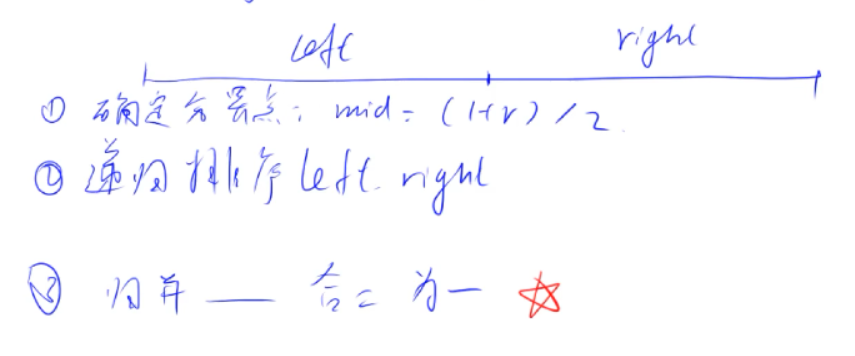 left right
① 确定分界点: mid = (l+r) / 2
② 递归排序 left. right
③ 归并 —— 合二为一 ☆